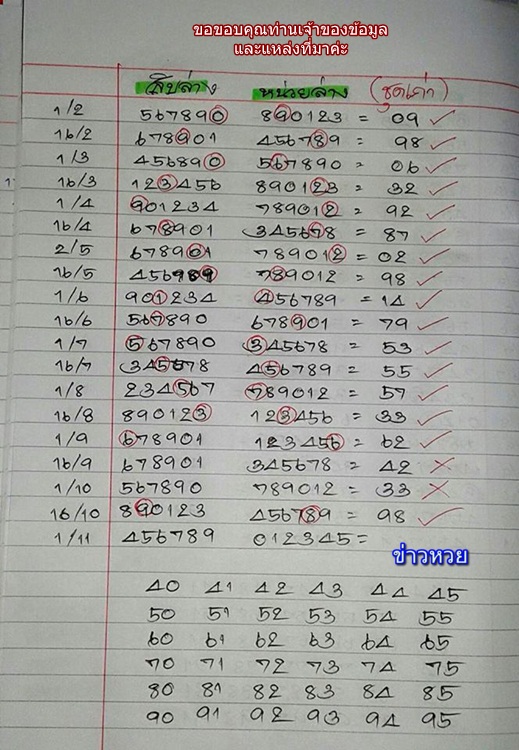 ขอขอบคุณท่านเจ้าของข้อมูล
และแหล่งที่มาค่ะ
สิบล่าง หน่วยล่าง (ชุดเก่า)
1/2 567890 890123 = 09 ✓
16/2 678901 456789 = 98 ✓
1/3 456890 567890 = 06 ✓
16/3 123456 890123 = 32 ✓
1/4 901234 789012 = 92 ✓
16/4 678901 345678 = 87 ✓
2/5 678901 789012 = 02 ✓
16/5 456789 789012 = 98 ✓
1/6 901234 456789 = 14 ✓
16/6 567890 678901 = 79 ✓
1/7 567890 345678 = 53 ✓
16/7 345678 456789 = 55 ✓
1/8 234567 789012 = 57 ✓
16/8 890123 123456 = 33 ✓
1/9 678901 123456 = 62 ✓
16/9 678901 345678 = 42 ✗
1/10 567890 789012 = 33 ✗
16/10 890123 456789 = 98 ✓
1/11 456789 012345 =
ข่าวหวย
40 41 42 43 44 45
50 51 52 53 54 55
60 61 62 63 64 65
70 71 72 73 74 75
80 81 82 83 84 85
90 91 92 93 94 95